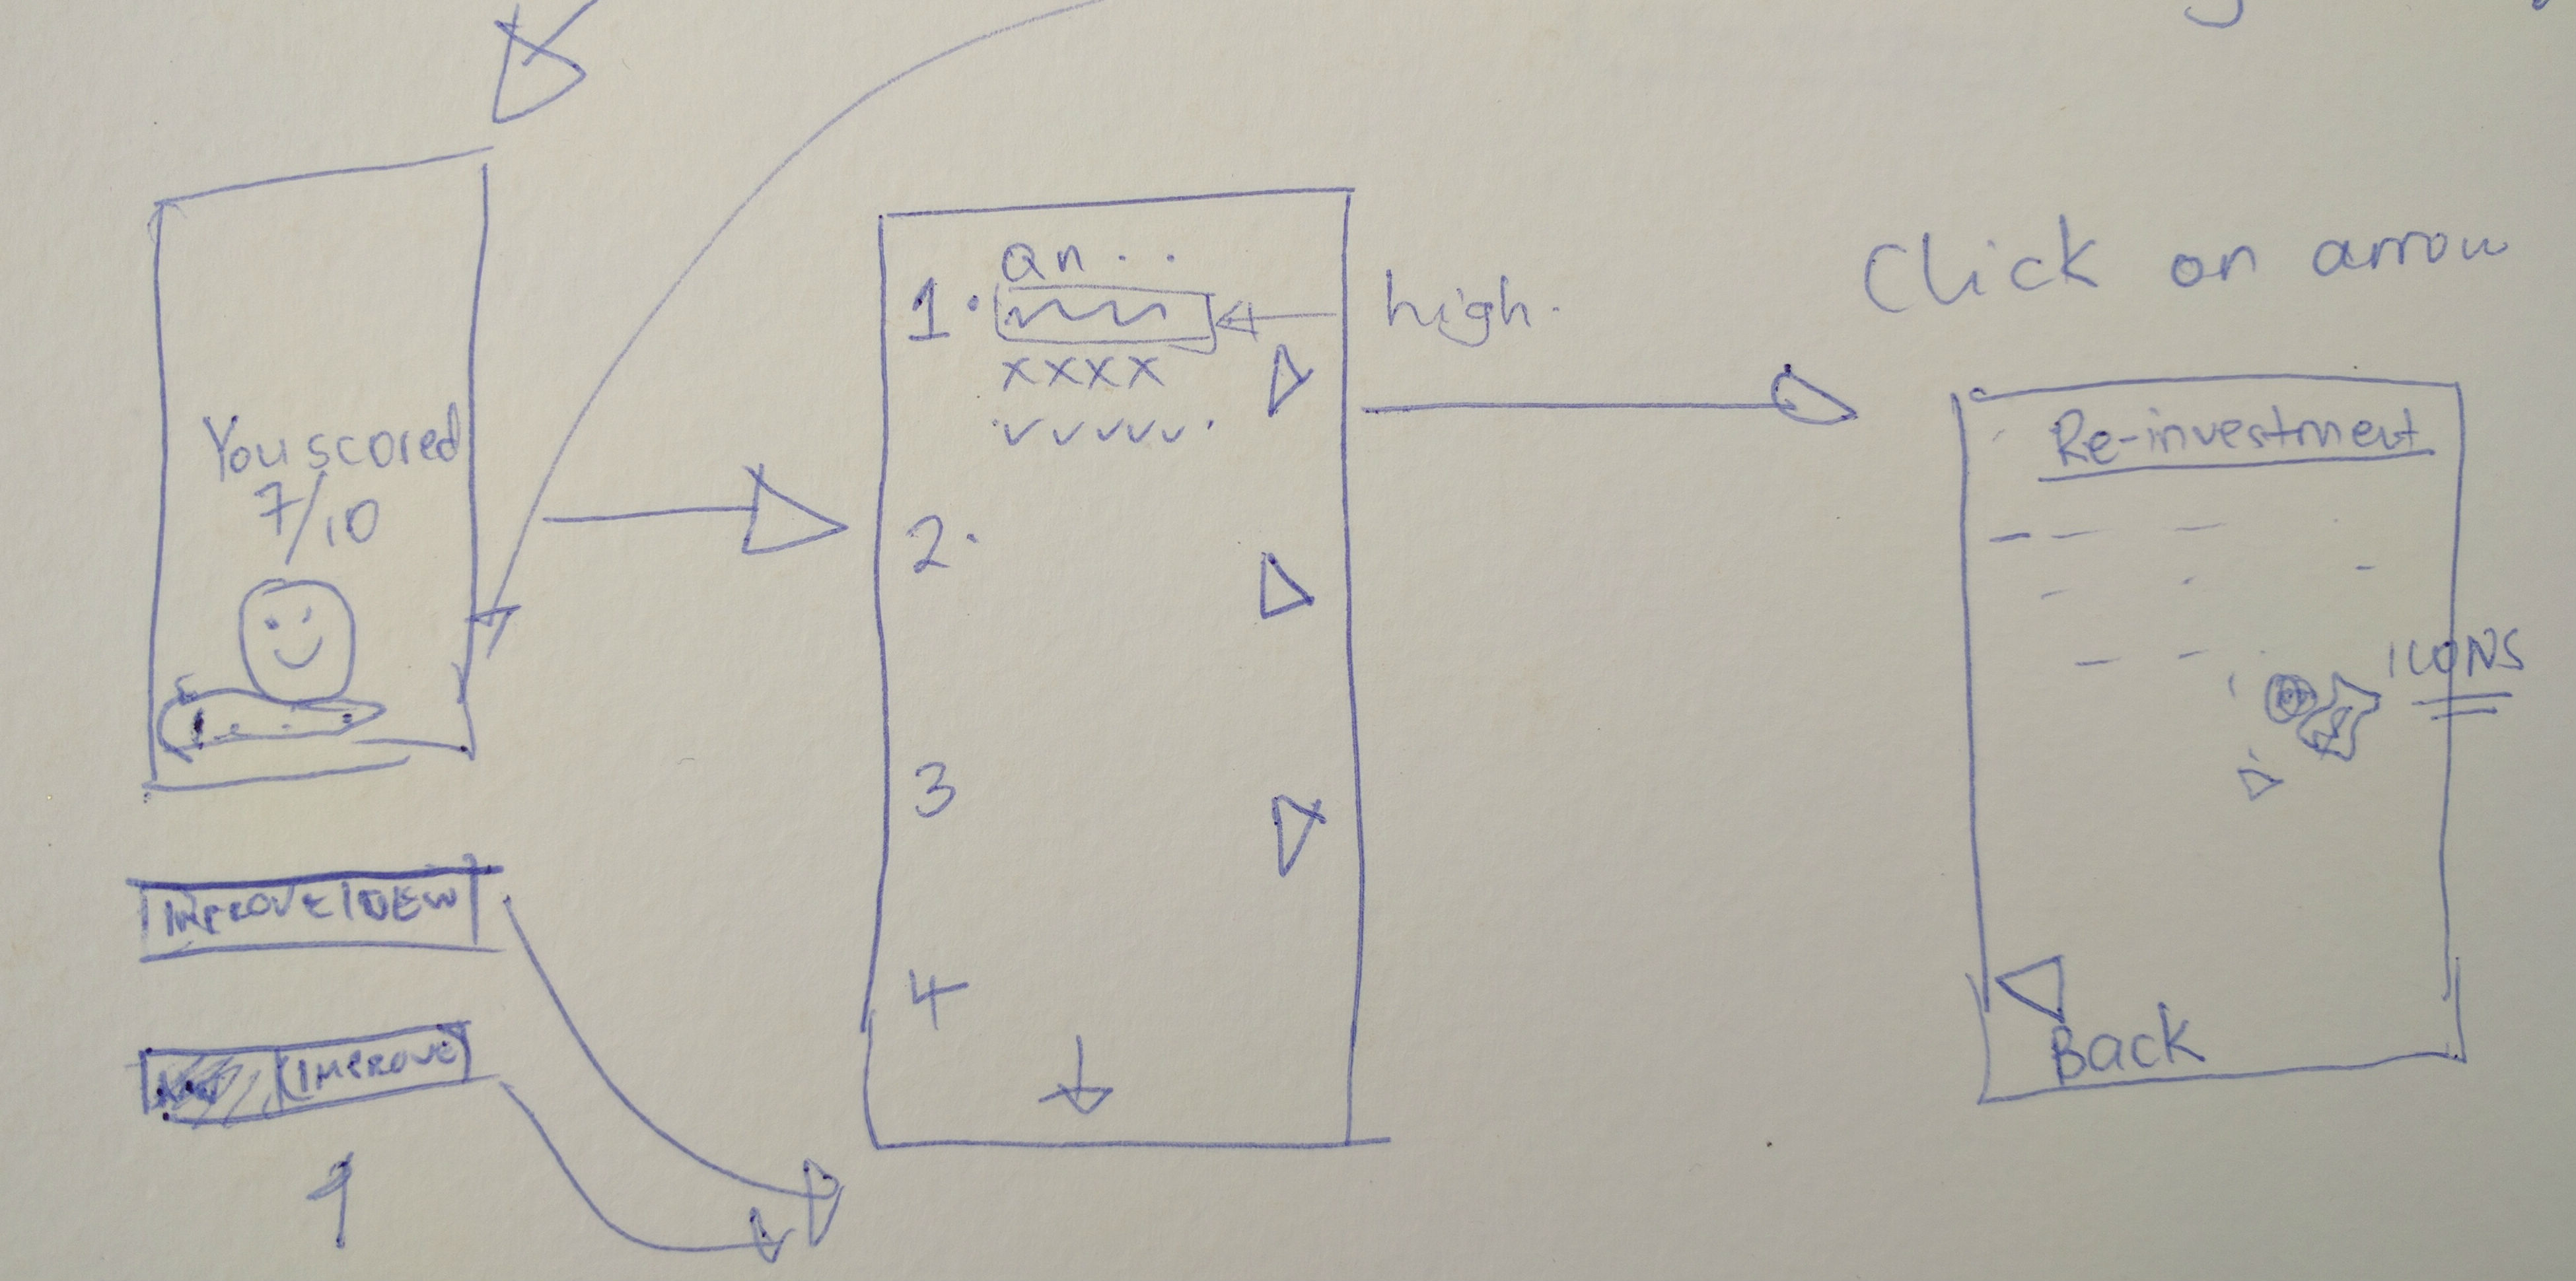 You scored
7/10
IMPROVE
IMPROVE
Qn..
1.
xxxx
vvvvv.
2.
3
4
high.
Click on arrow
Re-investment
ICONS
Back